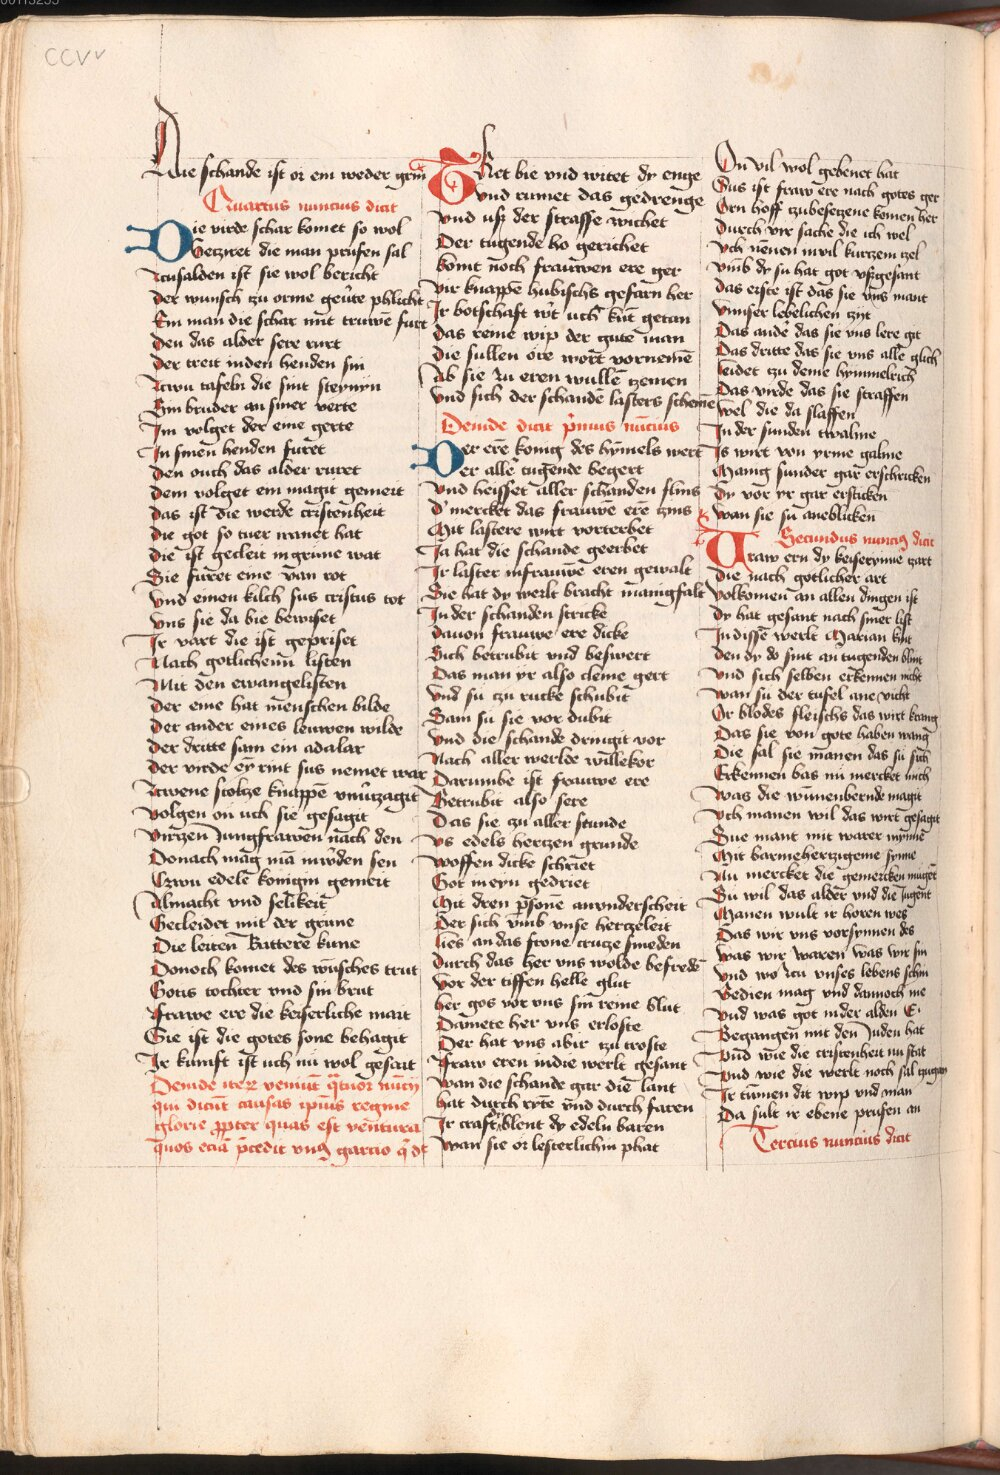 CCVv
Nie schande ist or em weder grim
Quartus nuncius dicit
Die virde schar komet so wol
Geczret die man prufen sal
Zcusalden ist sie wol bericht
Der wunsch zu orme geůte phlicht
Ein man die schar mit truwē furt
Den das alder sere rurt
Der treit inden henden sin
Zcwu tafeln die sint steynyn
Sin bruder an siner verte
Im volget der eine gerte
In sinen henden furet
Den ouch das alder ruret
Dem volget ein magit gemeit
Das ist die werde cristenheit
Die got so tuer manet hat
Die ist gecleit in grune wat
Sie furet eine van rot
Und einen kilch sus cristus tot
Uns sie da bie bewiset
Ir vart die ist gepriset
Nach gotlichenn listen
Mit den ewangelisten
Der eine hat menschen bilde
Der ander eines leuwen wilde
Der dritte sam ein adalar
Der virde ey rint sus nemet war
Zcwene stoltze knappē vnuirzagit
Volgen on uch sie gesagit
Virzen Jungfrawen nach den
Donach mag mā wirden sen
Czwu edele konigin gemeit
Almacht vnd selikeit
Gecleidet mit der grune
Die leiten Rattere kune
Donoch komet des wusches trut
Gotis tochter vnd sin brut
Frawe ere die keiserliche mait
Sie ist die gotes sone behagit
Ir kunft ist uch nu wol gesait
Deinde iterū veniūt q̄tuor nūcÿ
qui dicūt causas ipius regine
glorie ꝓpter quas est ventura
quos eciā p̄cedit vnꝰ garcio q̄ dt
Tret bie vnd witet dy enge
Vnd rumet das gedrenge
Vnd usz der strasse wichet
Der tugende ho gerichet
Kōmt noch frauwen ere her
Vir knappē hubischs gefarn her
Ir botschaft wirt uch kūt getan
Das reine wip der gute man
Die sullen ore wort vornemē
Ab sie zu eren wullē zemen
Vnd sich der schande lasters schemē
Deinde dicit p̄mus nūcius
Der erē konig des hymels wert
Der allē tugende begert
Vnd heisset aller schanden flins
D' mercket das frauwē ere zins
Mit lastere wirt vorterbet
Ja hat die schande geerbet
Ir laster infrauwē eren gewalt
Sie hat dy werlt bracht manigfalt
In der schanden stricke
Dauon frauwe ere dicke
Sich betrubit vnd beswert
Das man yr also cleine gert
Vnd su zu rucke schubit
Sam su sie vor dubit
Vnd die schande dringit vor
Nach aller werlde willekor
Darumbe ist frauwe ere
Betrubit also sere
Das sie zu aller stunde
Vs edels hertzen grunde
Woffen dicke schriet
Got in eyn gedriet
Mit dren p̄sonē anvnderscheit
Der sich vmb vnse hertzeleit
Lies an das frone cruze smeden
Durch das her vns wolde befredē
Vor der tiffen helle glut
Her gos vor vns sin reine blut
Damete her vns erloste
Der hat vns abir zu troste
Fraw eren indie werlt gesant
Wan die schande gar die lant
Hat durch ryte vnd durch faren
Ir craft blent dy edeln baren
Wan sie or lesterlichin phat
On vil wol gebenet hat
Sus ist fraw ere nach gotes ger
Orn hoff czubesetzene komen her
Durch vir sache die ich wel
Uch nenen in vil kurzem zel
Vmb dy su hat got uszgesant
Das erste ist das sie vns mant
Vnnser lebelichen zyt
Das ander das sie vns lere git
Das dritte das sie vns alle glich
Leidet zu deme hymmelrich
Das virde das sie straffen
Wel die da slaffen
In der sunden twalme
Is wirt von yrme galme
Manig sunder gar erschricken
Dy vor yr gar ersticken
Wan sie su aneblicken
Secundus nunciꝰ dicit
Fraw ern dy keiserynne zart
Die nach gotlicher art
Volkomen an allen dingen ist
Dy hat gesant nach siner list
In disse werlt Marian kint
Den dy do sint an tugenden blint
Vnd sich selben erkennen nicht
Wan su der tufel ane vicht
Or blodes fleischs das wirt krang
Das sie von gote haben wang
Die sal sie manen das su sich
Erkennen bas nu mercket mich
Was die wunnenbernde magit
Uch manen wil das wirt gesagit
Sue mant mit warer mynne
Mit barmehertzigeme synne
Nu mercket die gemercken muget
Su wil das alder vnd die Jugent
Manen wult ir horen wes
Das wir vns vorsynnen des
Was wir waren was wir sin
Vnd wo zcu vnses lebens schin
Gedien mag vnd dannoch me
Vnd was got in der alden E.
Begangen mit den Juden hat
Vnd wie die cristenheit nu stat
Vnd wie die werlt noch sal zugan
Ir tumen dit wip vnd man
Da sult ir ebene prufen an
Tercius nuncius dicit